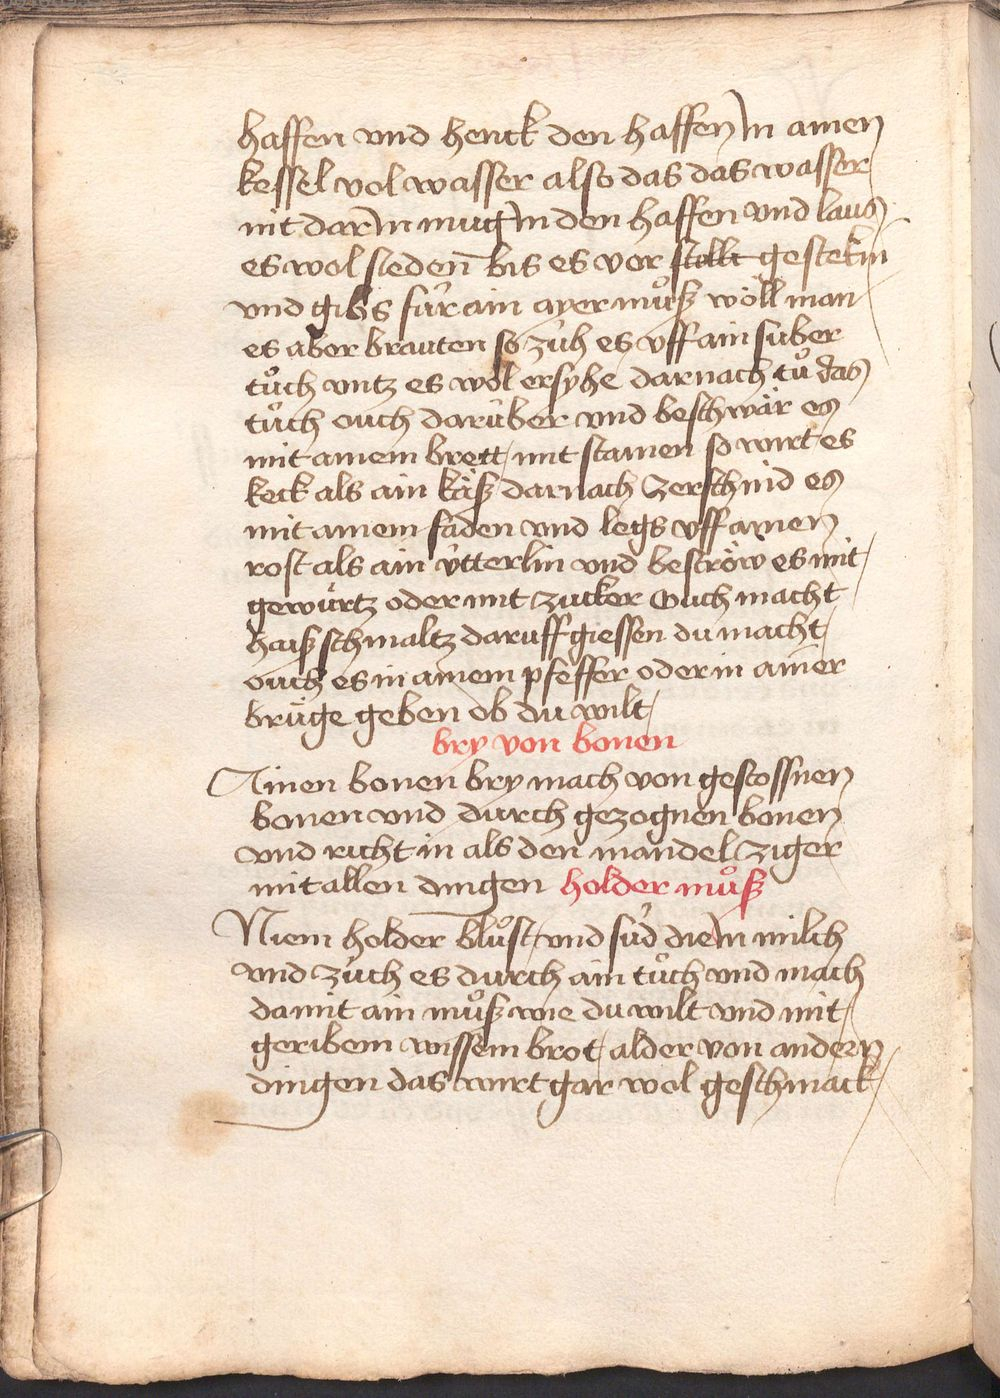 haffen vnd henck den haffen in ainen
kessel vol wasser also das das wasser
nit dar in mug in den haffen vnd laus
es wol sieden̄ bis es vor stellt gestekin
vnd gibs für ain ayer muͦß wöll man
es aber brauten so züh es vff ain suber
tuͦch vntz es wol ersyhe darnach tuͦ das
tuͦch ouch darüber vnd beschwär es
mit ainem brett mit stainen so wirt es
keck als ain käß darnach zerschnid es
mit ainem faden vnd legs vff ainen
rost als ain ütterlin vnd beströw es mit
gewürtz oder mit zucker Ouch macht
haiß schmaltz daruff giessen du macht
ouch es in ainem pfeffer oder in ainer
brüge geben ob du wilt
bry von bonen
Ainen bonen bry mach von gestossnen
bonen vnd durch gezognen bonen
vnd richt in als den mandel ziger
mit allen dingen holder muͦß
Niem holder bluͦst vnd süd die in milch
vnd züch es durch ain tuͦch vnd mach
da mit ain muͦß wie du wilt vnd mit
geribem wissem brot alder von andern
dingen das wirt gar wol geschmack